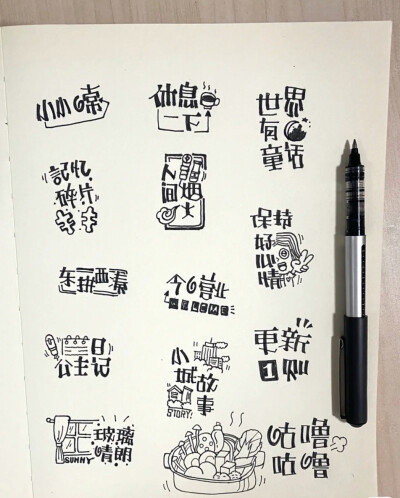 小小日常
休息
一下
世界
有
童话
記忆
碎片
人间
烟火
保持
好
心
情
东拼西凑
今日营业
WELCOME
日
公主记
小
城故
事
STORY
更新
1如
玻璃
晴朗
SUNNY
咕噜
咕噜